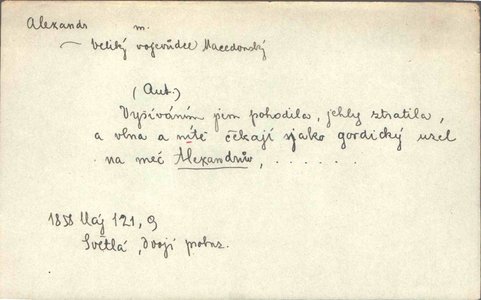 Alexandr m.
— veliký vojevůdce Macedonský
(Aut.)
Vyšíváním jsem pohodila, jehly ztratila,
a vlna a nitě čekají jako gordický uzel
na meč Alexandrův, . . . . . .
1858 Máj 121, 9
Světlá, Dvojí probuz.